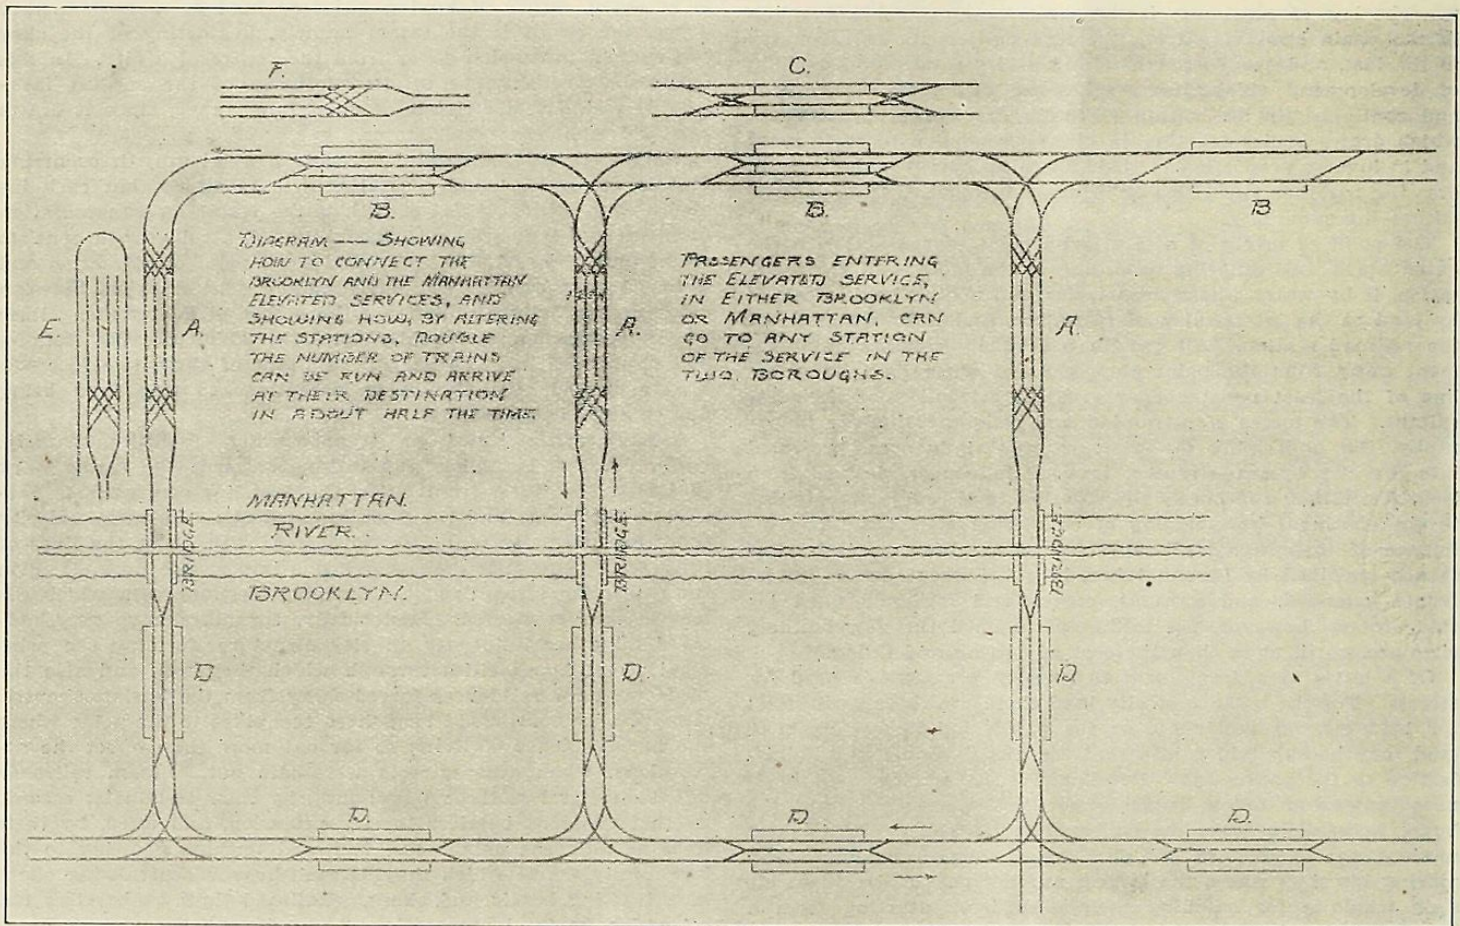 F.
C.
B.
B.
B
DIAGRAM — SHOWING
HOW TO CONNECT THE
BROOKLYN AND THE MANHATTAN
ELEVATED SERVICES, AND
SHOWING HOW, BY ALTERING
THE STATIONS, DOUBLE
THE NUMBER OF TRAINS
CAN BE RUN AND ARRIVE
AT THEIR DESTINATION
IN ABOUT HALF THE TIME.
PASSENGERS ENTERING
THE ELEVATED SERVICE,
IN EITHER BROOKLYN
OR MANHATTAN, CAN
GO TO ANY STATION
OF THE SERVICE IN THE
TWO BOROUGHS.
E.
A.
A.
A.
MANHATTAN.
RIVER.
BROOKLYN.
BRIDGE.
BRIDGE.
BRIDGE.
D
D.
D
D.
D.
D.